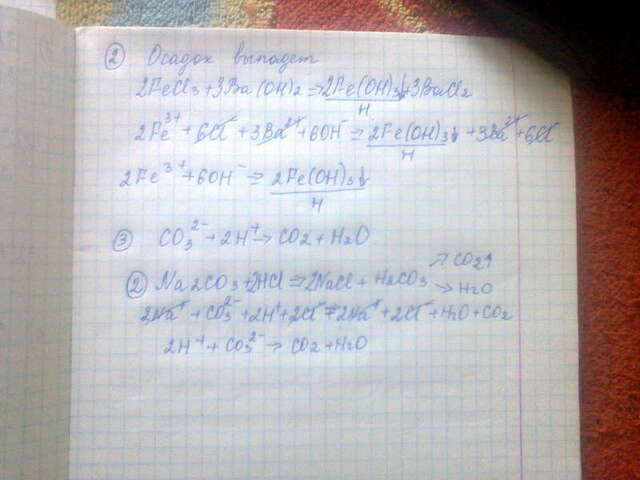 ② Осадок выпадает
2FeCl3+3Ba(OH)2=2Fe(OH)3↓+3BaCl2
H
2Fe³⁺+6Cl⁻+3Ba²⁺+6OH⁻=2Fe(OH)3↓+3Ba²⁺+6Cl⁻
H
2Fe³⁺+6OH⁻=2Fe(OH)3↓
H
③ CO3²⁻+2H⁺→CO2+H2O
② Na2CO3+2HCl=2NaCl+H2CO3 ↗CO2↑ →H2O
2Na⁺+CO3²⁻+2H⁺+2Cl⁻=2Na⁺+2Cl⁻+H2O+CO2
2H⁺+CO3²⁻→CO2+H2O